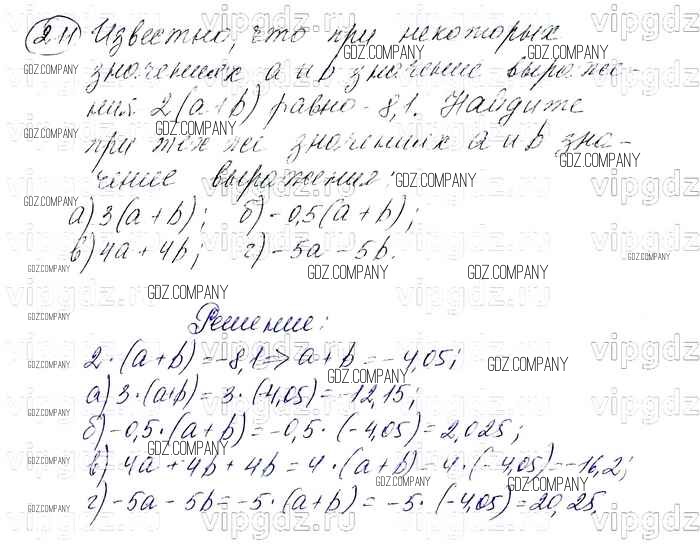 211 Известно, что при некоторых
значениях a и b значение выраже-
ния 2(a+b) равно -8,1. Найдите
при тех же значениях a и b зна-
чение выражения:
а) 3(a+b); б) -0,5(a+b);
в) 4a+4b; г) -5a-5b.
Решение:
2·(a+b)=-8,1⇒a+b=-4,05;
а) 3·(a+b)=3·(-4,05)=-12,15;
б) -0,5·(a+b)=-0,5·(-4,05)=2,025;
в) 4a+4b+4b=4·(a+b)=4·(-4,05)=-16,2;
г) -5a-5b=-5·(a+b)=-5·(-4,05)=20,25.